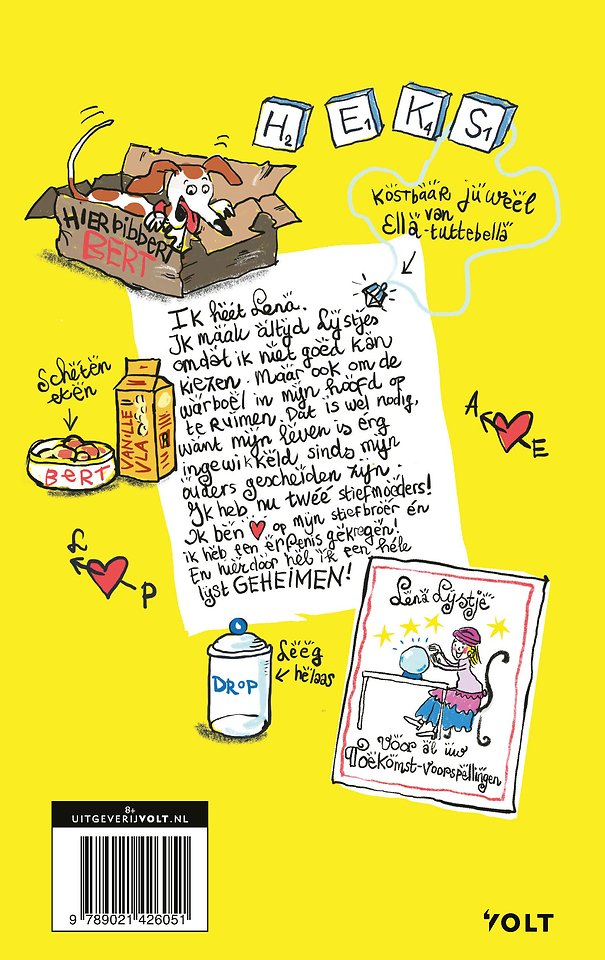 H2 E1 K4 S1
HIER bibbert
BERT
Kostbaar juweel
van
Ella-tuttebella
Ik heet Lena.
Ik maak altijd Lijstjes
omdat ik niet goed kan
kiezen. Maar ook om de
warboel in mijn hoofd op
te ruimen. Dat is wel nodig,
want mijn leven is erg
ingewikkeld sinds mijn
ouders gescheiden zijn.
Ik heb nu twéé stiefmoeders!
Ik ben ♥ op mijn stiefbroer én
ik heb een erfenis gekregen!
En hierdoor heb ik een héle
lijst GEHEIMEN!
Scheten
eten
VANILLE
VLA
BERT
A
E
L
P
Leeg
helaas
DROP
Lena Lijstje
Voor al uw
Toekomst-voorspellingen
8+
UITGEVERIJVOLT.NL
9 789021 426051
VOLT